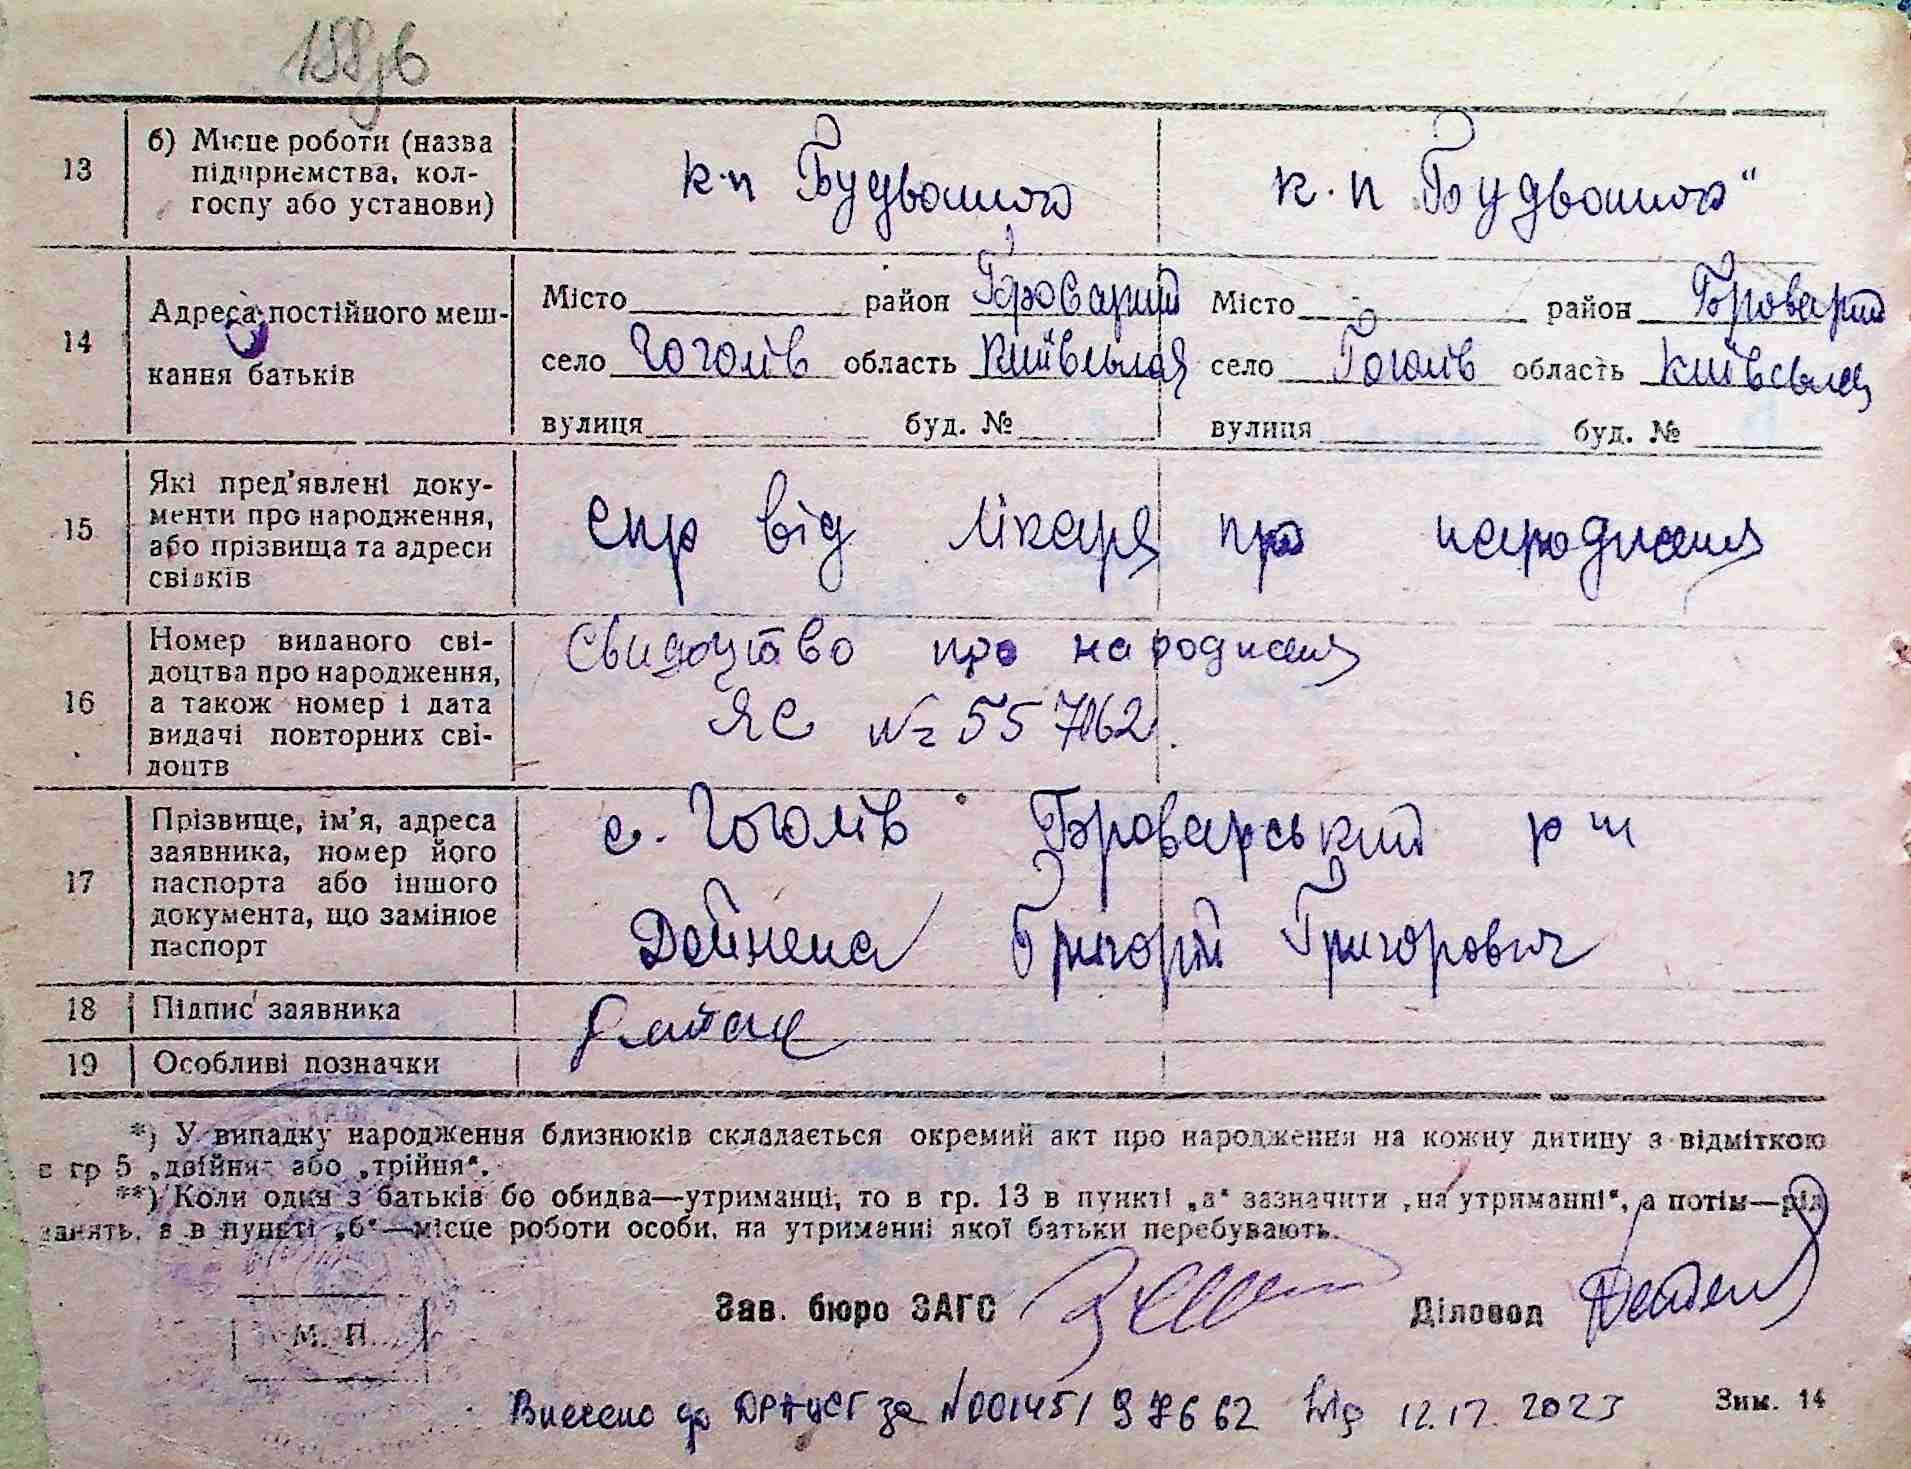 158зв
13 б) Місце роботи (назва підприємства, колгоспу або установи) к.п Будвошого к.п Будвошого"
14 Адреса постійного мешкання батьків
Місто район Броварий Місто район Броварий
село Гоголів область Київська село Гоголів область Київська
вулиця буд. № вулиця буд. №
15 Які пред'явлені документи про народження, або прізвища та адреси свідків
спр від лікаря про народження
16 Номер виданого свідоцтва про народження, а також номер і дата видачі повторних свідоцтв
Свидоцтво про народження
ЯС № 557162.
17 Прізвище, ім'я, адреса заявника, номер його паспорта або іншого документа, що замінює паспорт
с. Гоголів Броварський р н
Дейнека Григорій Григорович
18 Підпис заявника
19 Особливі позначки
*) У випадку народження близнюків складається окремий акт про народження на кожну дитину з відміткою
в гр 5 „двійня" або „трійня".
**) Коли один з батьків бо обидва—утриманці, то в гр. 13 в пункті „а" зазначити „на утриманні", а потім—рід
занять, а в пункті „б"—місце роботи особи, на утриманні якої батьки перебувають.
Зав. бюро ЗАГС Діловод
М. П.
Внесено до ДРАЦСГ за №00145197662 від 12.12.2023 Зим. 14